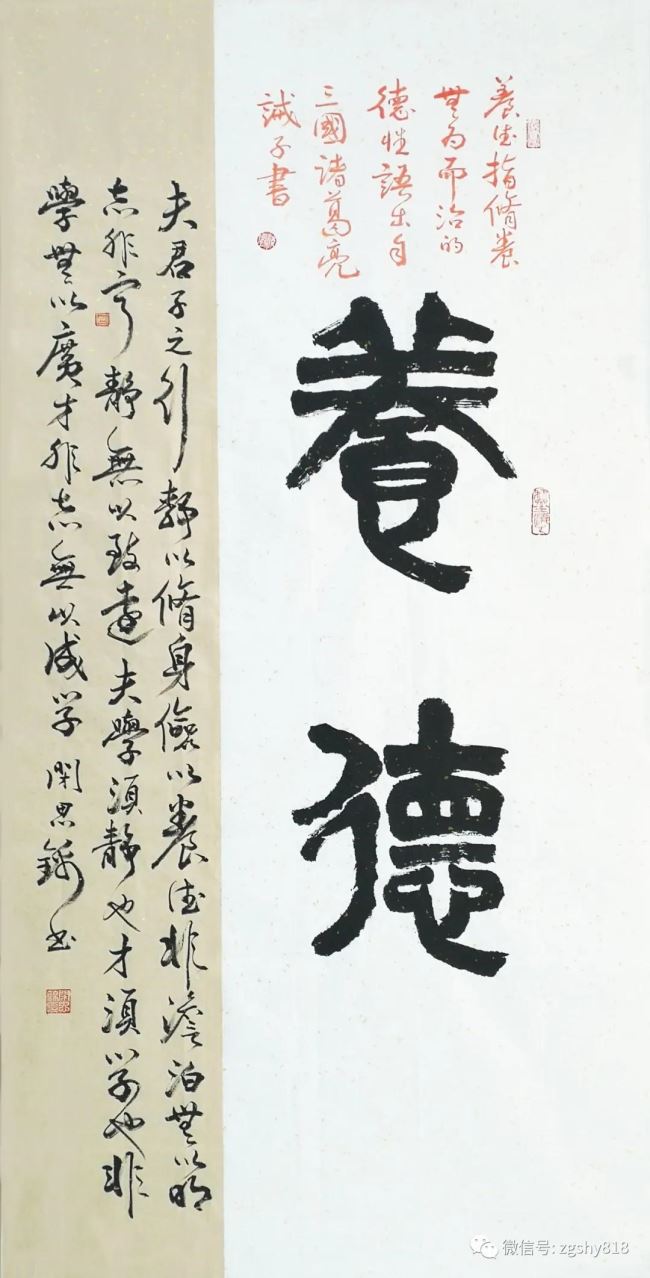 養德指脩養
無为而治的
德性語出自
三國諸葛亮
誡子書
養德
夫君子之行静以脩身儉以養德非澹泊無以明
志非宁静無以致遠夫學須静也才須学也非
學無以廣才非志無以成学 思 书
微信号: zgshy818